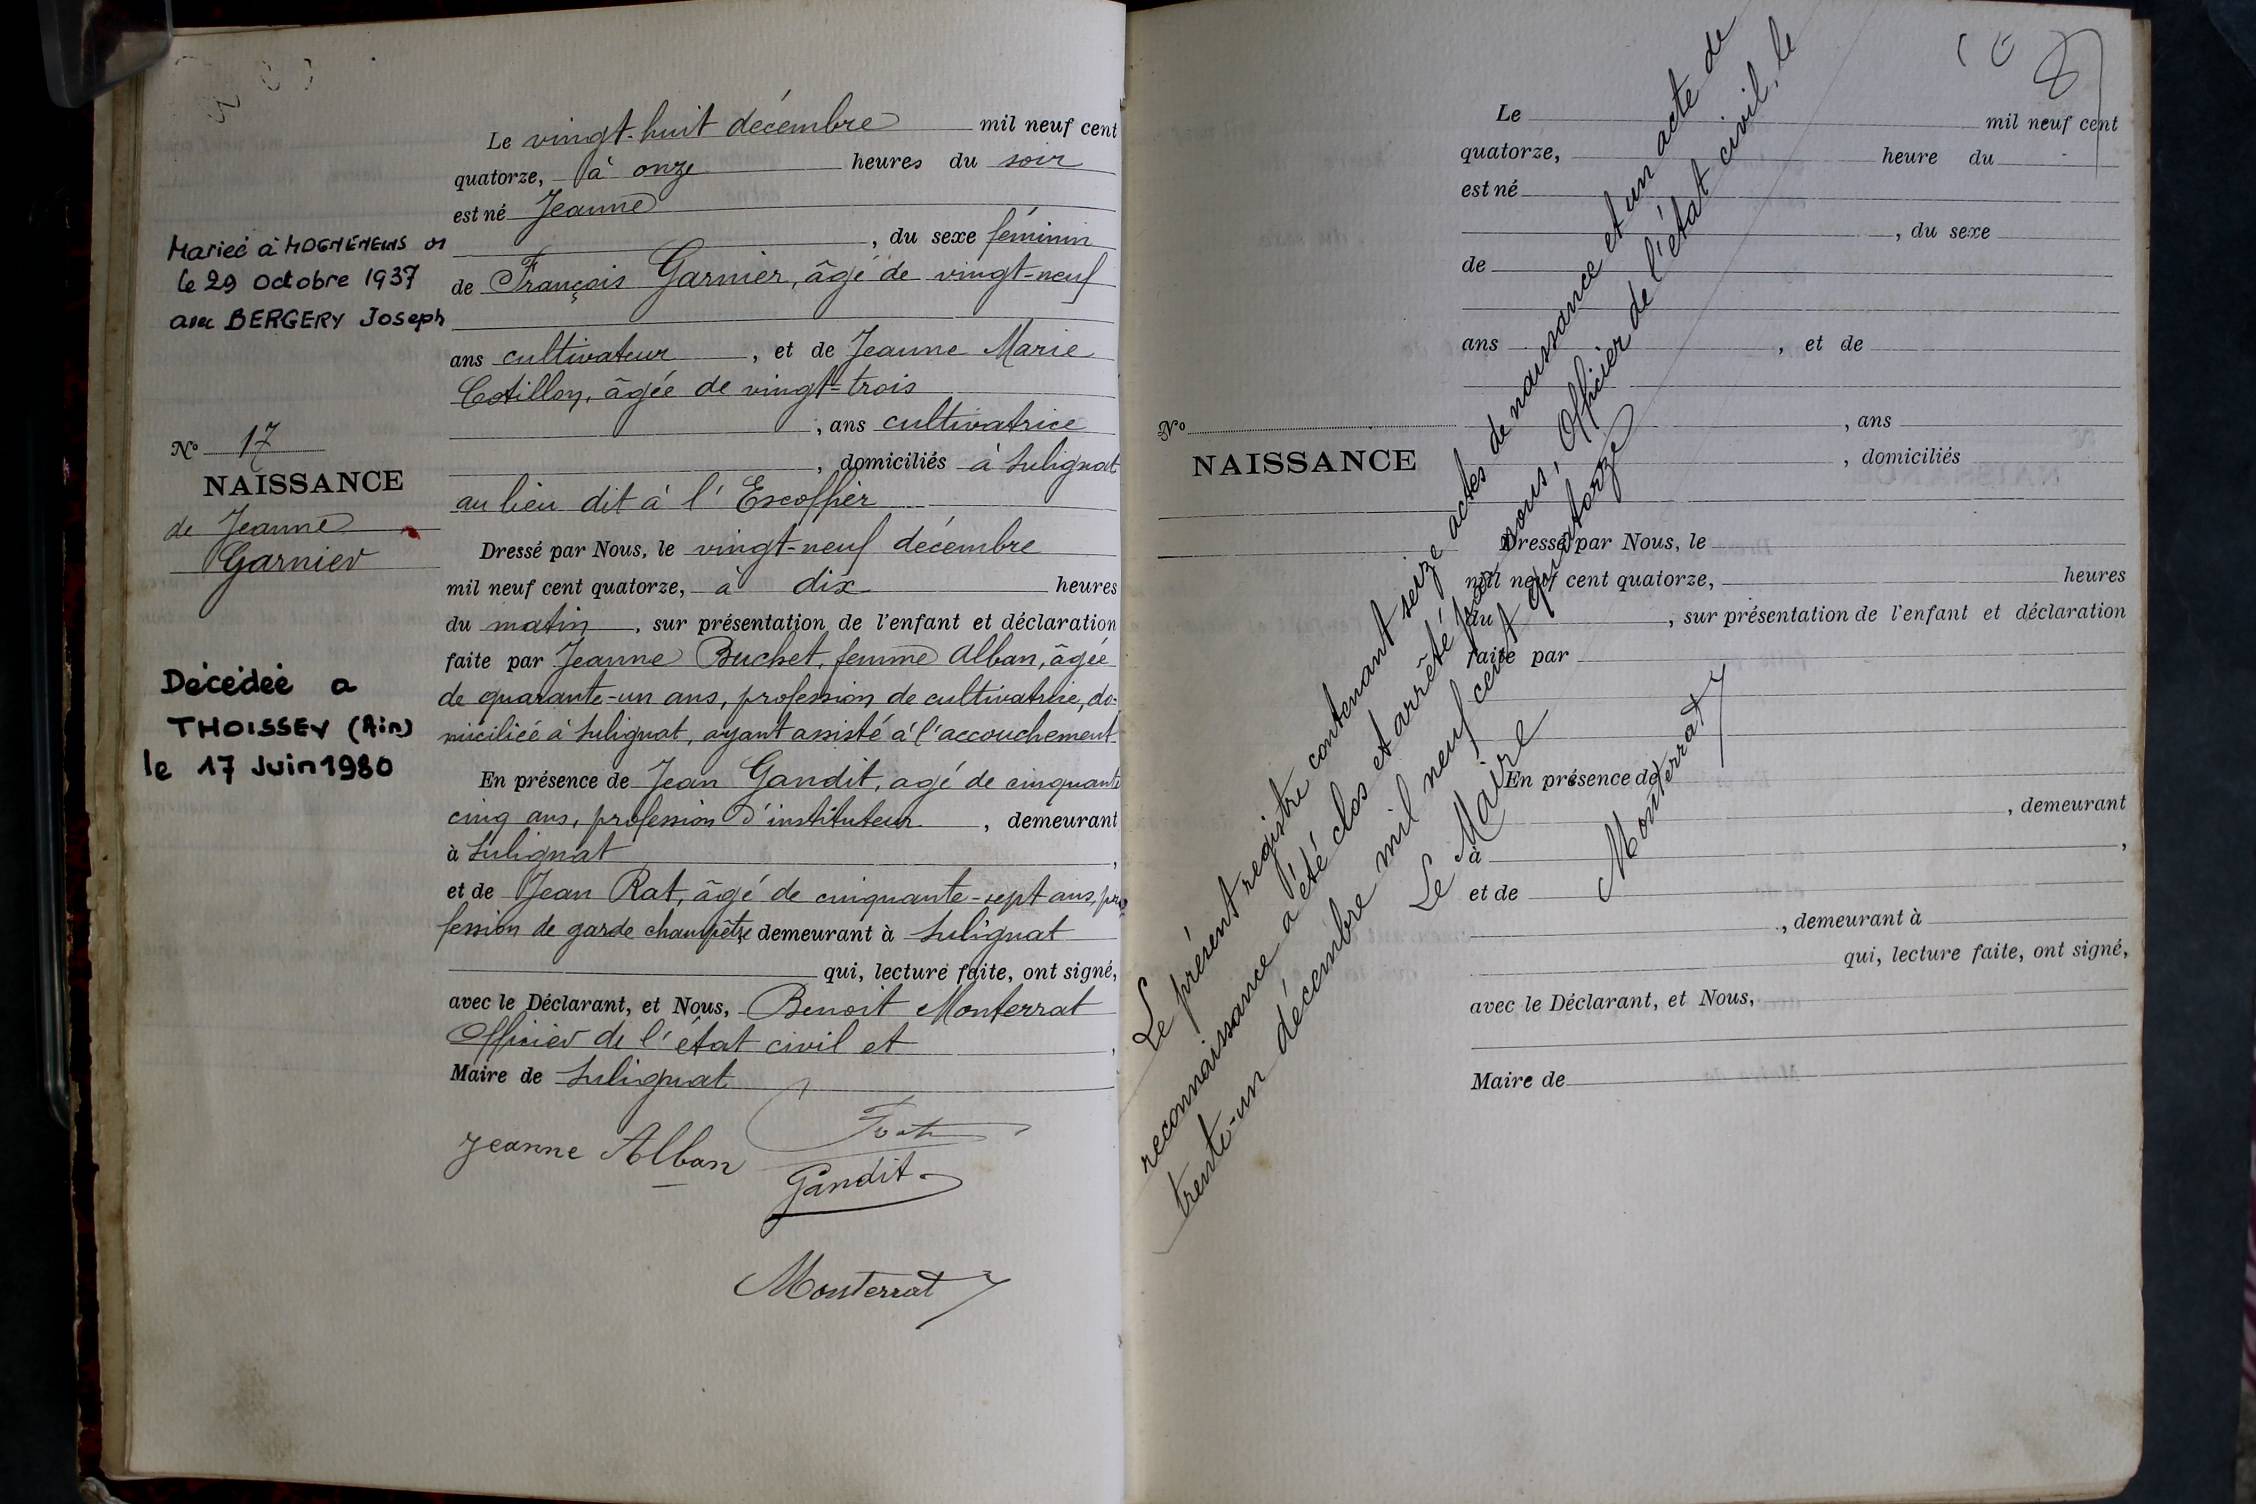 Le vingt-huit décembre mil neuf cent
quatorze, à onze heures du soir
est né Jeanne
, du sexe féminin
de François Garnier, âgé de vingt-neuf
ans cultivateur, et de Jeanne Marie
Cotillon, âgée de vingt-trois
, ans cultivatrice
, domiciliés à Sulignat
au lieu dit à l'Escoffier
Dressé par Nous, le vingt-neuf décembre
mil neuf cent quatorze, à dix heures
du matin, sur présentation de l'enfant et déclaration
faite par Jeanne Buchet, femme Alban, âgée
de quarante-un ans, profession de cultivatrice, do-
miciliée à Sulignat, ayant assisté à l'accouchement
En présence de Jean Gandit, agé de cinquante
cinq ans, profession d'instituteur, demeurant
à Sulignat,
et de Jean Rat, âgé de cinquante-sept ans, pro
fession de garde champêtre demeurant à Sulignat
qui, lecture faite, ont signé,
avec le Déclarant, et Nous, Benoit Monterrat
Officier de l'état civil et,
Maire de Sulignat
Jeanne Alban
Gandit
Monterrat
Mariée à
le 29 octobre 1937
avec BERGERY Joseph
No 17
NAISSANCE
de Jeanne
Garnier
Décédée a
THOISSEY (Ain)
le 17 Juin 1980
Le mil neuf cent
quatorze, heure du
est né
, du sexe
de
ans, et de
, ans
, domiciliés
No
NAISSANCE
Dressé par Nous, le
mil neuf cent quatorze, heures
du, sur présentation de l'enfant et déclaration
faite par
En présence de
, demeurant
à,
et de
, demeurant à
qui, lecture faite, ont signé,
avec le Déclarant, et Nous,
Maire de
Le présent registre contenant seize actes de naissance et un acte de
reconnaissance a été clos et arrêté par nous, Officier de l'état civil, le
trente-un décembre mil neuf cent quatorze
Le Maire
Monterrat